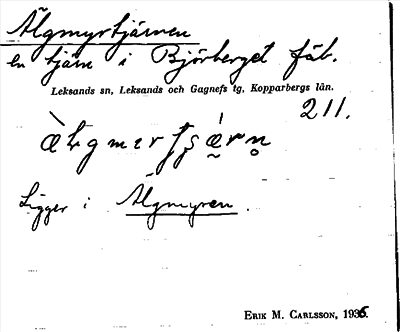 Älgmyrtjärnen
en tjärn i Björberget fäb.
Leksands sn, Leksands och Gagnefs tg, Kopparbergs län.
211.
Ligger i Älgmyren.
ERIK M. CARLSSON, 1936.